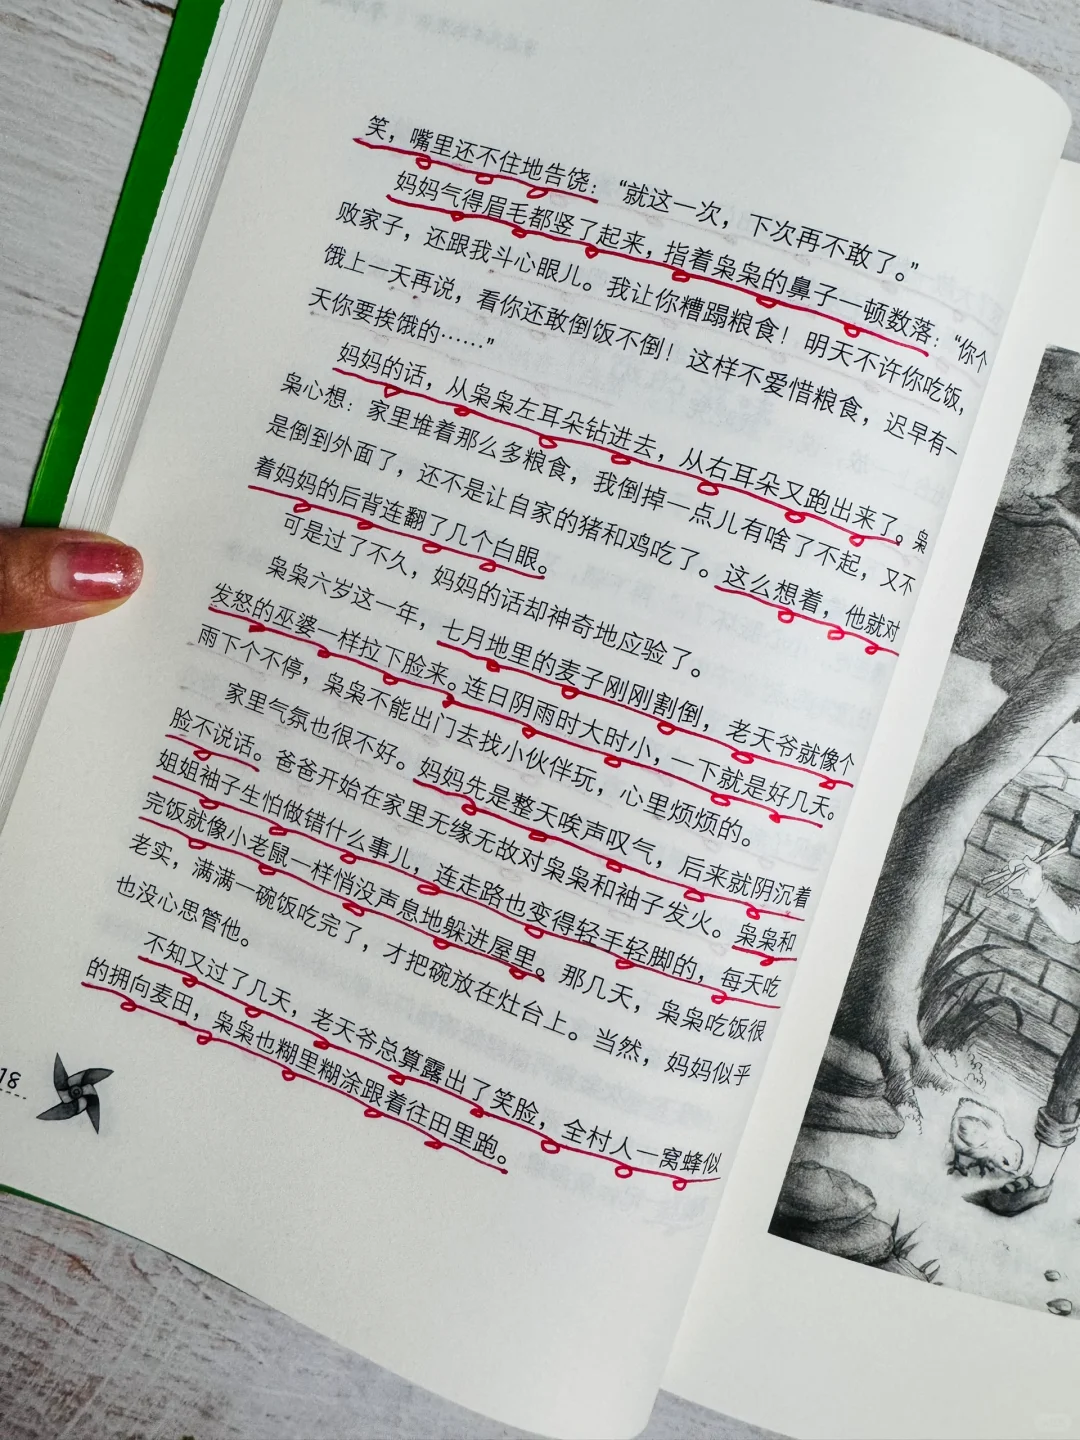 笑，嘴里还不住地告饶：“就这一次，下次再不敢了。”
妈妈气得眉毛都竖了起来，指着枭枭的鼻子一顿数落：“你个
败家子，还跟我斗心眼儿。我让你糟蹋粮食！明天不许你吃饭，
饿上一天再说，看你还敢倒饭不倒！这样不爱惜粮食，迟早有一
天你要挨饿的……”
妈妈的话，从枭枭左耳朵钻进去，从右耳朵又跑出来了。枭
枭心想：家里堆着那么多粮食，我倒掉一点儿有啥了不起，又不
是倒到外面了，还不是让自家的猪和鸡吃了。这么想着，他就对
着妈妈的后背连翻了几个白眼。
可是过了不久，妈妈的话却神奇地应验了。
枭枭六岁这一年，七月地里的麦子刚刚割倒，老天爷就像个
发怒的巫婆一样拉下脸来。连日阴雨时大时小，一下就是好几天。
雨下个不停，枭枭不能出门去找小伙伴玩，心里烦烦的。
家里气氛也很不好。妈妈先是整天唉声叹气，后来就阴沉着
脸不说话。爸爸开始在家里无缘无故对枭枭和袖子发火。枭枭和
姐姐袖子生怕做错什么事儿，连走路也变得轻手轻脚的，每天吃
完饭就像小老鼠一样悄没声息地躲进屋里。那几天，枭枭吃饭很
老实，满满一碗饭吃完了，才把碗放在灶台上。当然，妈妈似乎
也没心思管他。
不知又过了几天，老天爷总算露出了笑脸，全村人一窝蜂似
的拥向麦田，枭枭也糊里糊涂跟着往田里跑。
18